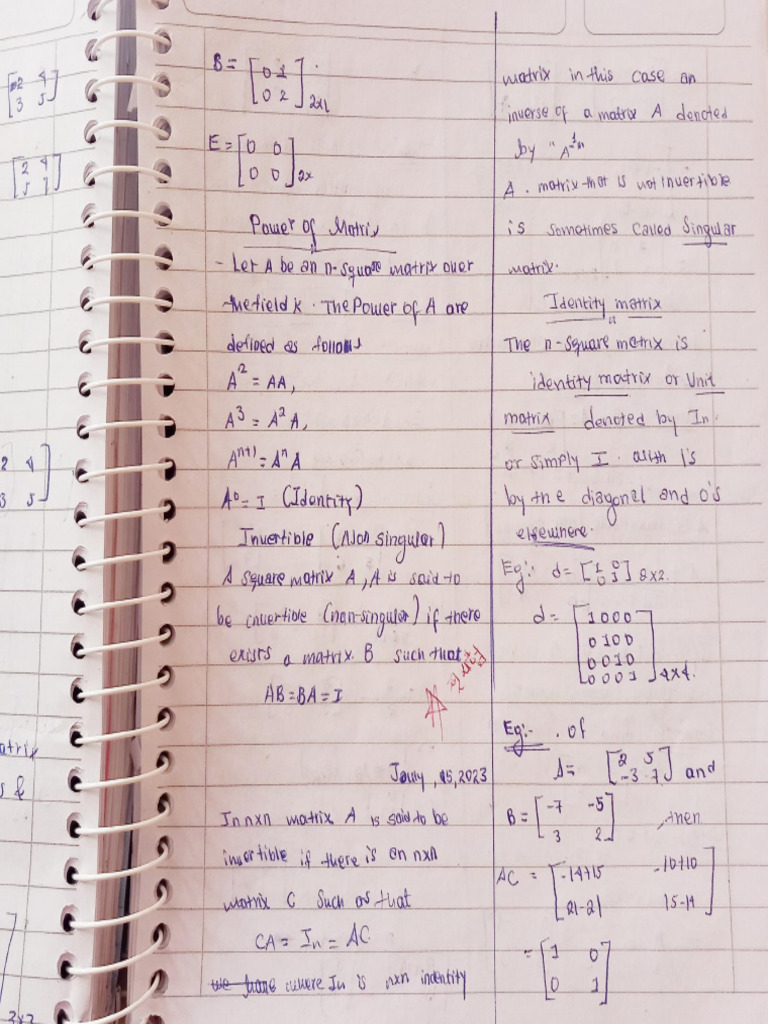 2 4
3 5
2 4
5 7
2 4
3 5
atrix
s &
2x2
B = [0 1
0 2] 2x2
E = [0 0
0 0] 2x
Power of Matrix
- Let A be an n-square matrix over
the field k. The Power of A are
defined as follows
A² = AA,
A³ = A² A,
Aⁿ⁺¹ = Aⁿ A
A⁰ = I (Identity)
Invertible (Non singular)
A square matrix A, A is said to
be invertible (non-singular) if there
exists a matrix B such that
AB = BA = I
15, 2023
In nxn matrix A is said to be
invertible if there is an nxn
matrix C such as that
CA = In = AC
where In is nxn indentity
matrix in this case an
inverse of a matrix A denoted
by "A⁻¹"
A . matrix that is not invertible
is sometimes called Singular
matrix.
Identity matrix
The n-square matrix is
identity matrix or Unit
matrix denoted by In
or simply I. with 1's
by the diagonel and 0's
elsewhere.
Eg:- d = [1 0
0 1] 2x2.
d = [1 0 0 0
0 1 0 0
0 0 1 0
0 0 0 1] 4x4.
Eg:- . of
A = [2 5
-3 7] and
B = [-7 -5
3 2] , then
AC = [-14+15 -10+10
21-21 15-14]
= [1 0
0 1]